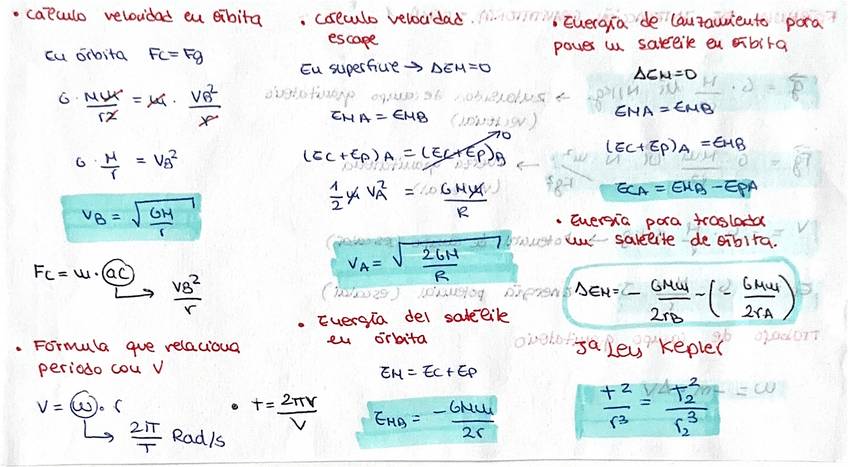 • Cálculo velocidad en órbita
En órbita Fc = Fg
G · Mm/r² = m · VB²/r
G · M/r = VB²
VB = √(GM/r)
Fc = m · ac
→ VB²/r
• Fórmula que relaciona
periodo con V
V = ω · r
→ 2π/T Rad/s
• t = 2πr/V
• Cálculo velocidad
escape
En superficie → ΔEM = 0
EMA = EMB
(Ec + Ep)A = (Ec + Ep)B → 0
1/2 m VA² = GMm/R
VA = √(2GM/R)
• Energía del satélite
en órbita
EM = Ec + Ep
EMB = -GMm/2r
• Energía de lanzamiento para
poner un satélite en órbita
ΔEM = 0
EMA = EMB
(Ec + Ep)A = EMB
EcA = EMB - EpA
• Energía para trasladar
un satélite de órbita.
ΔEM = - GMm/2rB - (- GMm/2rA)
3ª Ley Kepler
t²/r³ = t₂²/r₂³